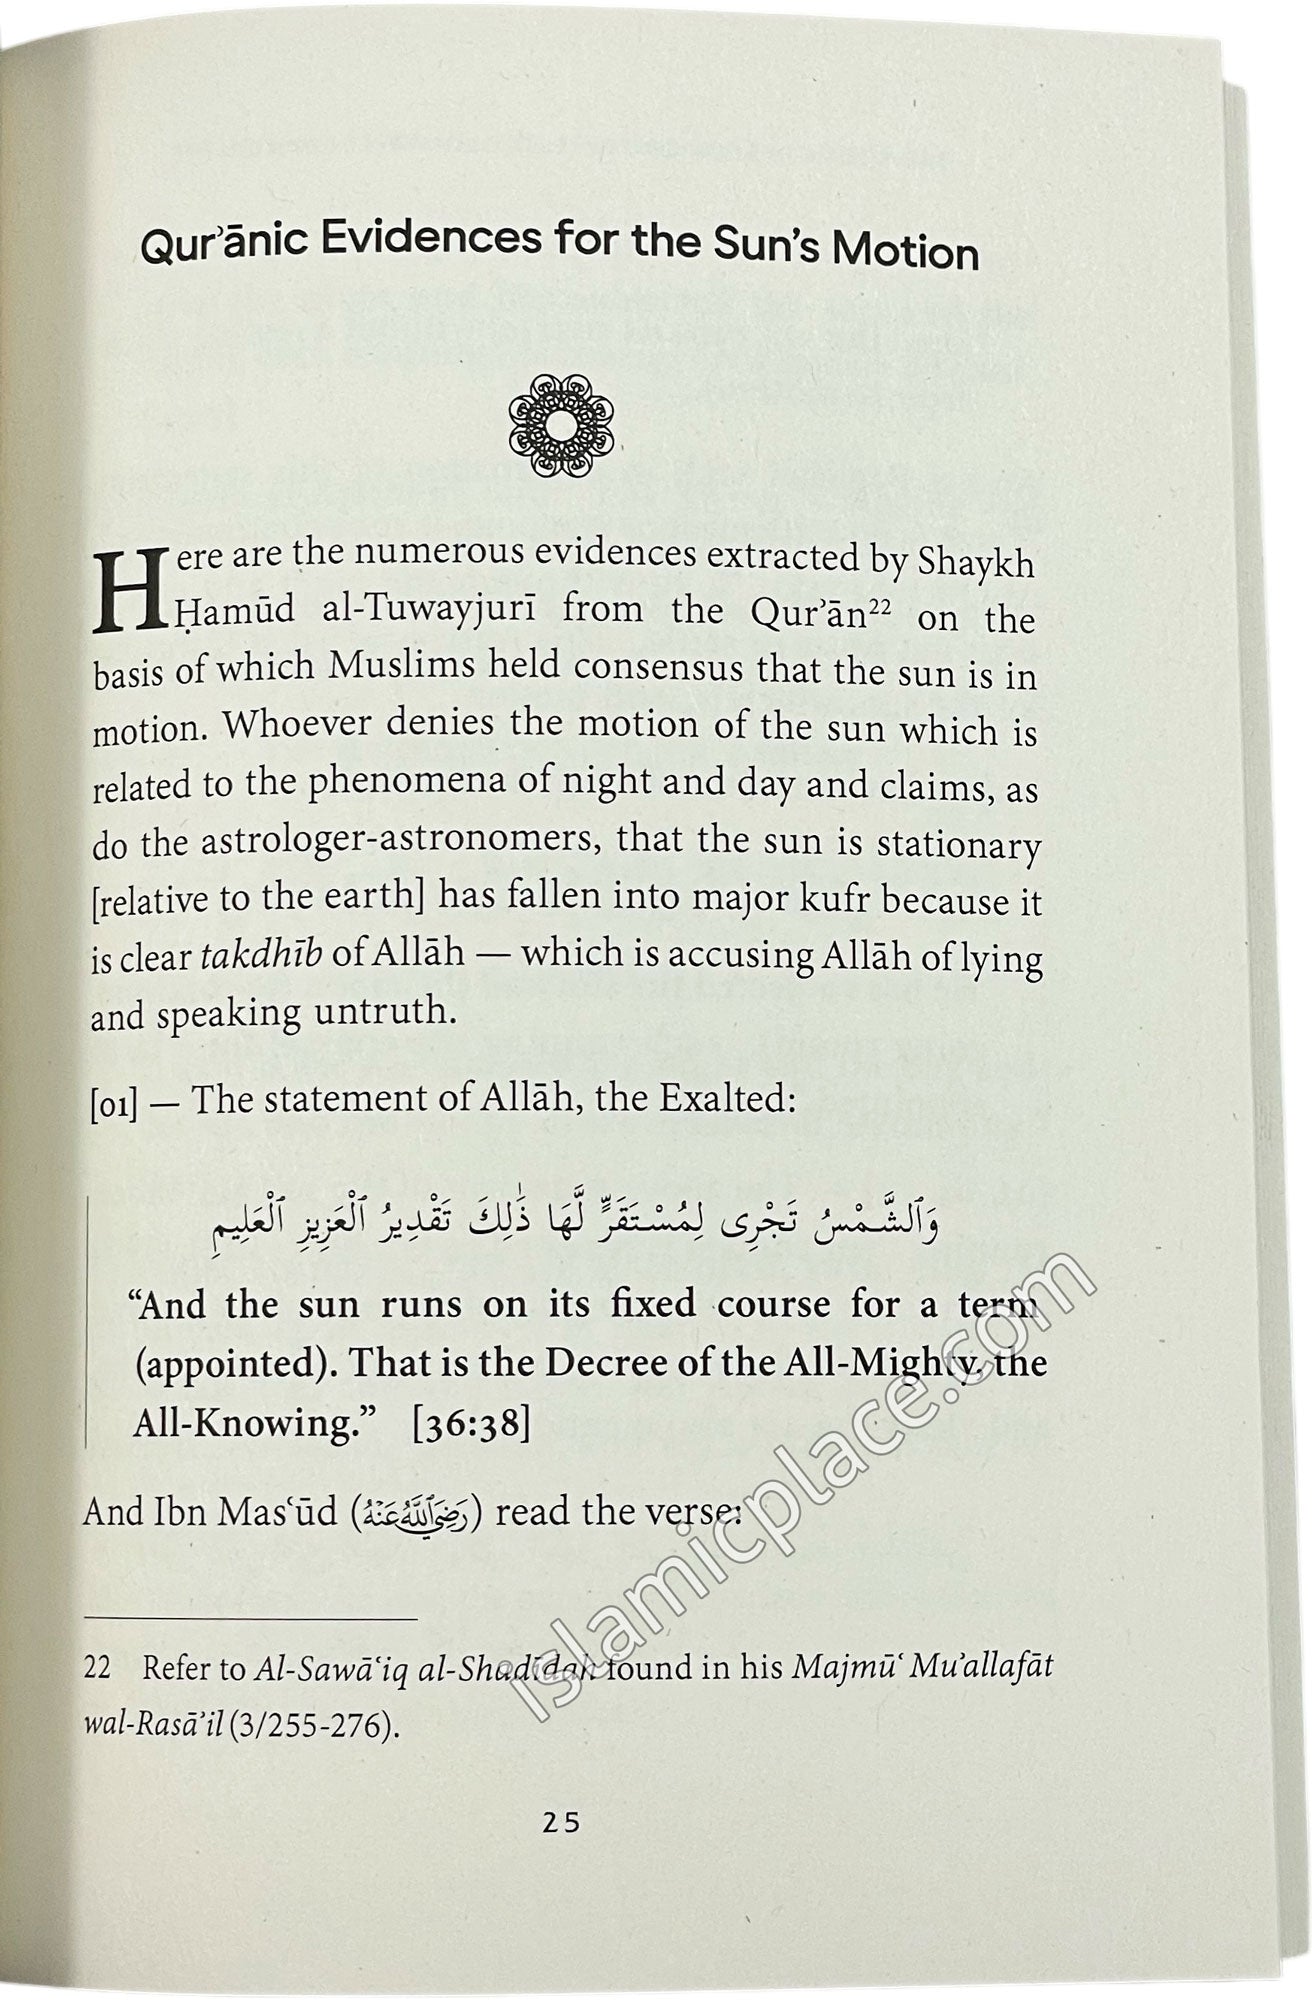 Qur’ānic Evidences for the Sun’s Motion
Here are the numerous evidences extracted by Shaykh
Ḥamūd al-Tuwayjurī from the Qur’ān22 on the
basis of which Muslims held consensus that the sun is in
motion. Whoever denies the motion of the sun which is
related to the phenomena of night and day and claims, as
do the astrologer-astronomers, that the sun is stationary
[relative to the earth] has fallen into major kufr because it
is clear takdhīb of Allāh — which is accusing Allāh of lying
and speaking untruth.
[01] — The statement of Allāh, the Exalted:
وَٱلشَّمْسُ تَجْرِى لِمُسْتَقَرٍّ لَّهَا ذَٰلِكَ تَقْدِيرُ ٱلْعَزِيزِ ٱلْعَلِيمِ
“And the sun runs on its fixed course for a term
(appointed). That is the Decree of the All-Mighty, the
All-Knowing.” [36:38]
And Ibn Mas‘ūd (رَضِيَ ٱللَّهُ عَنْهُ) read the verse:
22 Refer to Al-Sawā‘iq al-Shadīdah found in his Majmū‘ Mu’allafāt
wal-Rasā’il (3/255-276).
25
islamicplace.com